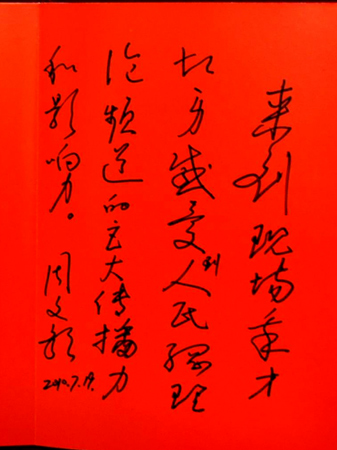 来到现场我才
切身感受到人民网理
论频道的巨大传播力
和影响力。 周文彰